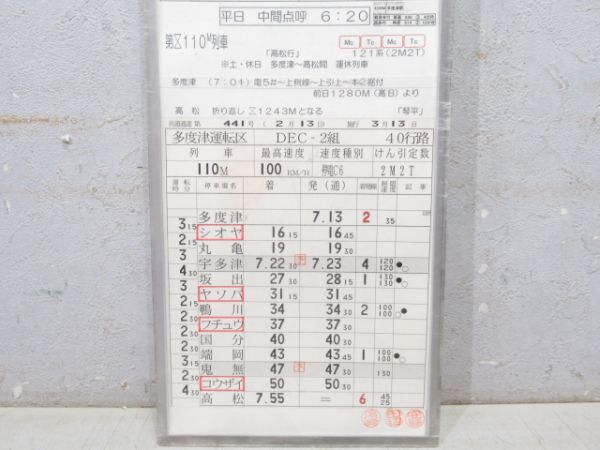 平日 中間点呼 6:20
第〆110M列車
Mc Tc Mc Tc
「高松行」 121系(2M2T)
※土・休日 多度津〜高松間 運休列車
多度津 (7:0キ) 電5#〜上側線〜上引上〜本2据付
前日1280M(高日)より
高 松 折り返し 三1243Mとなる 「琴平」
列車達第 441号(2月13日) 施行 3月13日
多度津運転区 DEC-2組 40行路
列車 最高速度 速度種別 けん引定数
110M 100KM/H 2M2T
運転時分 停車場名 着 発(通) 着発線 制限速度 記事
多度津 7.13 2 35
3 15 シオヤ 16 15 16 45
2 15 丸亀 19 19 30
3 宇多津 7.22 30 7.23 4 120 120
4 30 坂出 27 30 28 15 1 130 130
3 ヤソバ 31 15 31 45
2 15 鴨川 34 34 30 2 100 100
2 30 フチュウ 37 37 30
2 30 国分 40 40 30
2 30 端岡 43 43 45 1 100 100
3 15 鬼無 47 47 30 130
2 30 コウザイ 50 50 30
4 30 高松 7.55 = 6 45 25